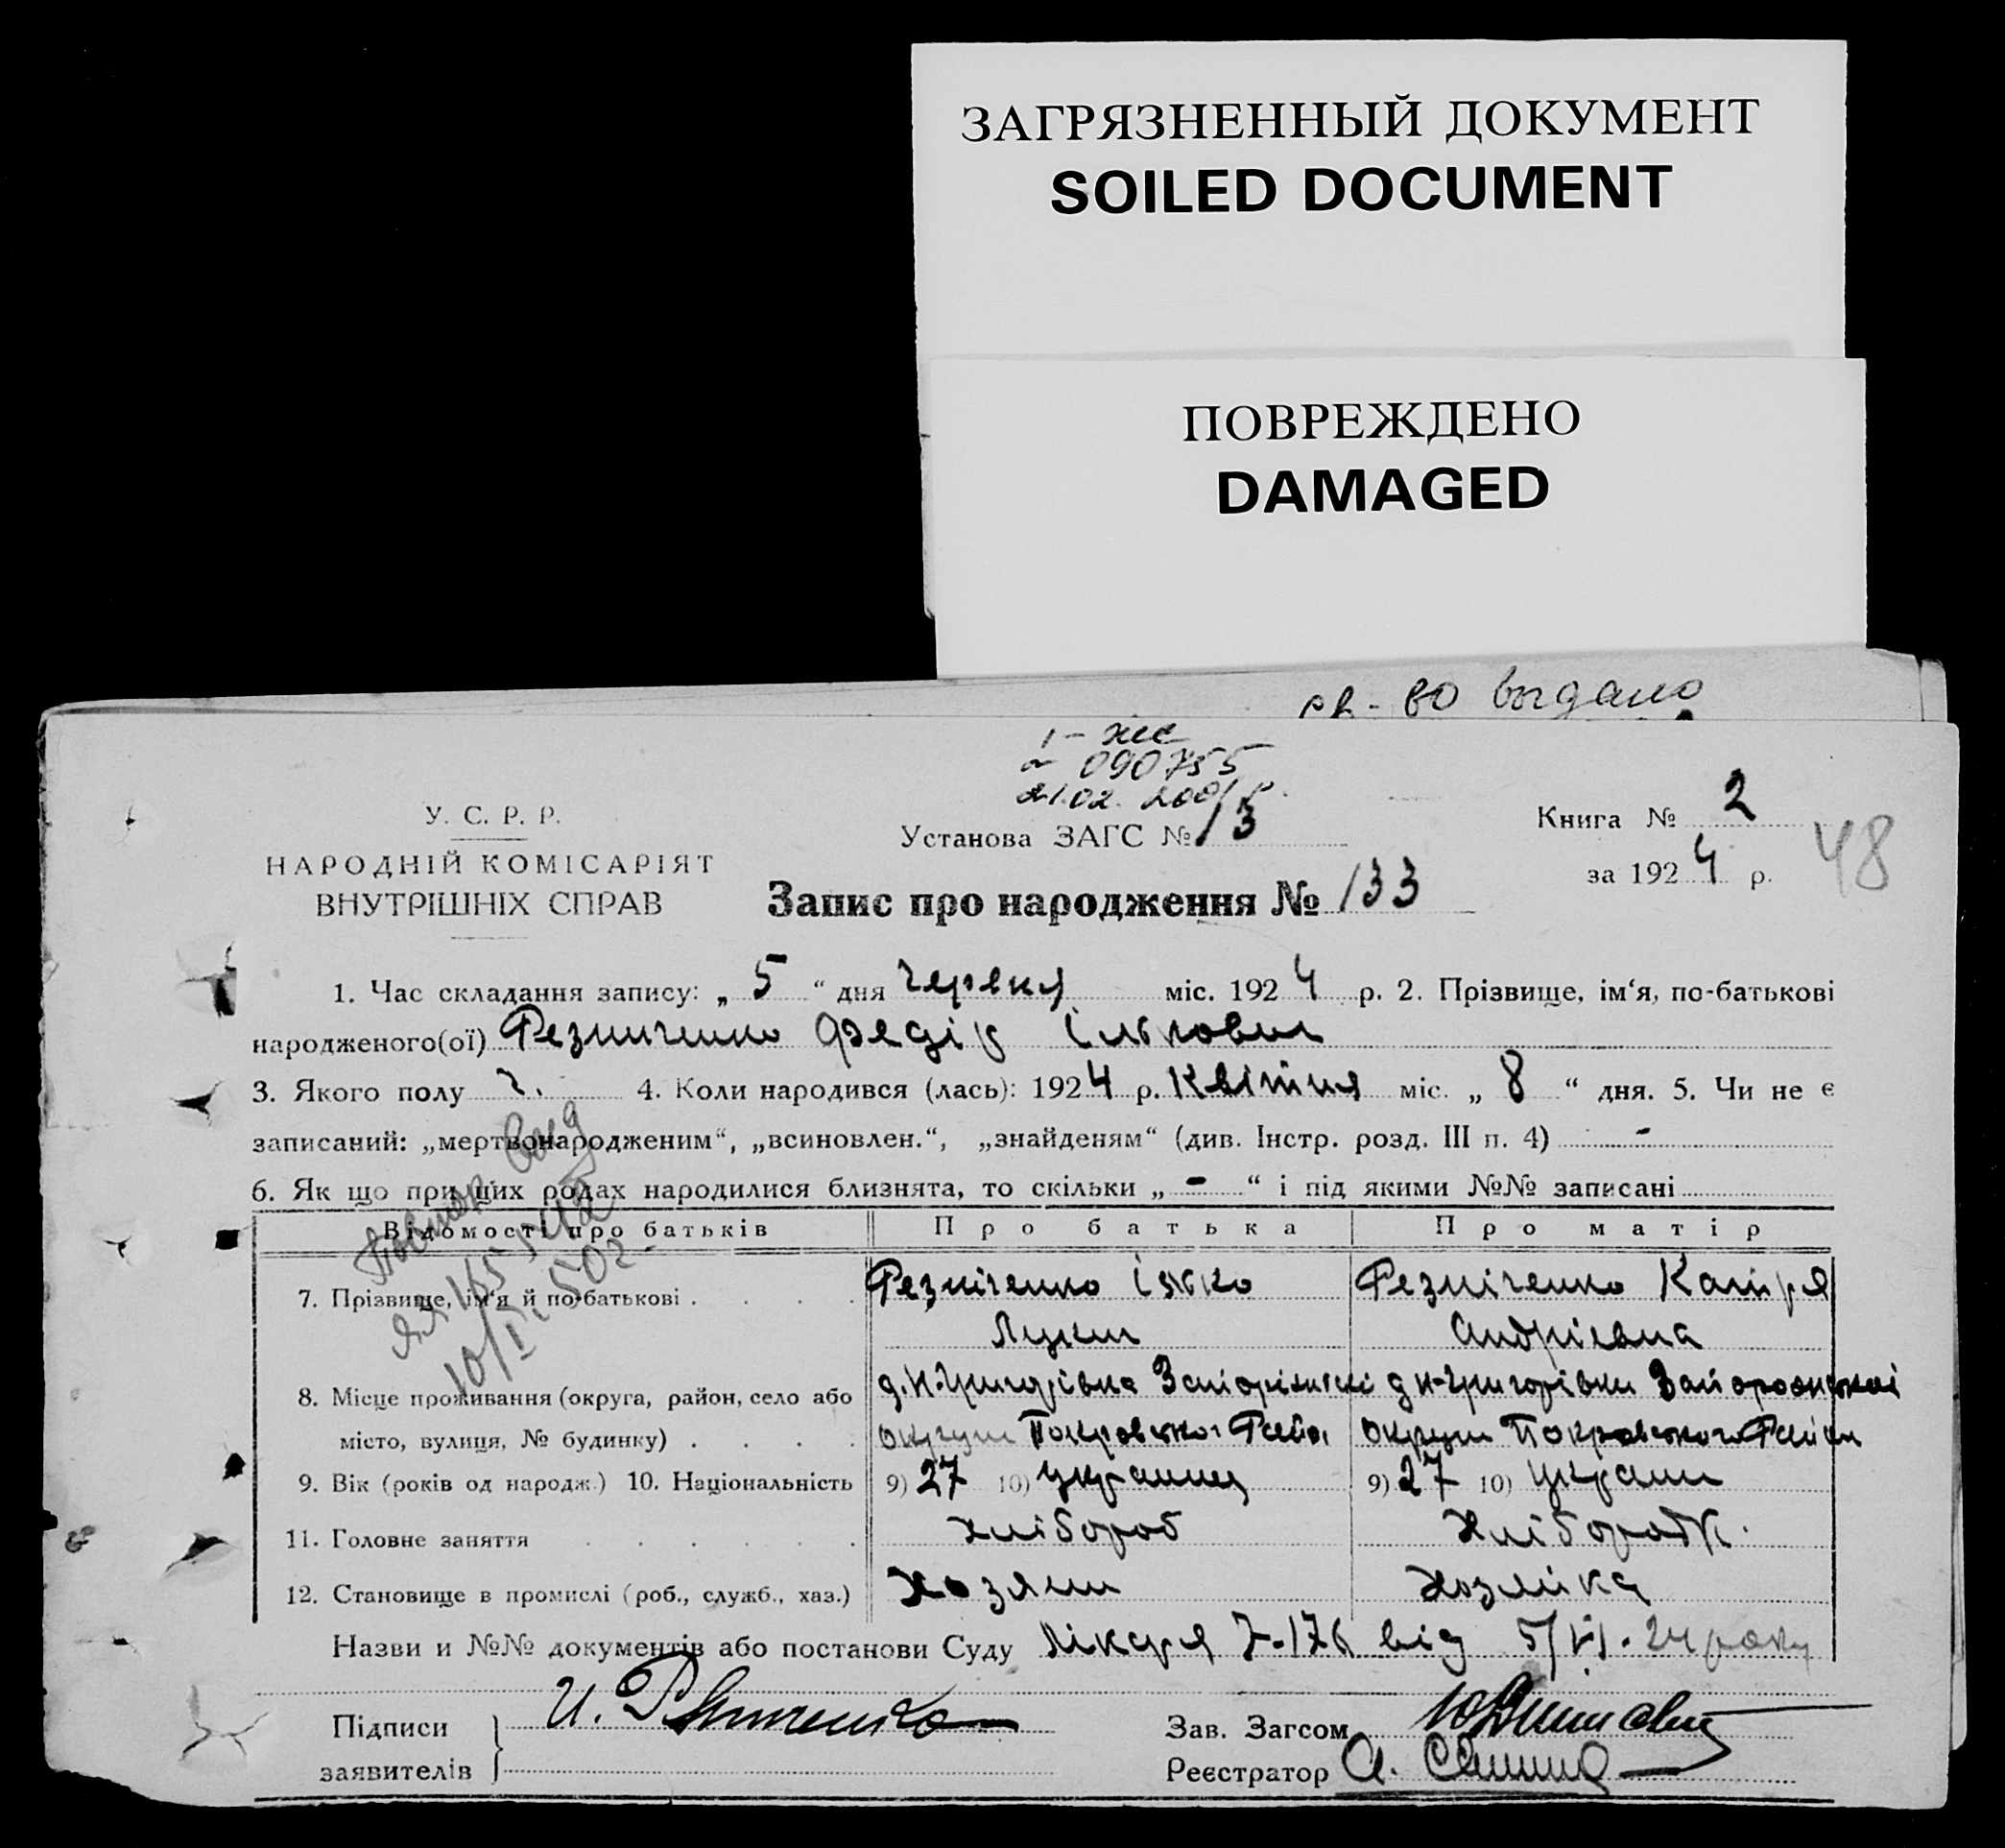 ЗАГРЯЗНЕННЫЙ ДОКУМЕНТ
SOILED DOCUMENT
ПОВРЕЖДЕНО
DAMAGED
выдано
090755
21.02.
У. С. Р. Р.
НАРОДНІЙ КОМІСАРІЯТ
ВНУТРІШНІХ СПРАВ
Установа ЗАГС № 13
Запис про народження № 133
Книга № 2
за 1924 р.
48
1. Час складання запису: „ 5 “ дня червня міс. 1924 р. 2. Прізвище, ім‘я, по-батькові
народженого(ої) Резниченко Федір Ількович
3. Якого полу ч. 4. Коли народився (лась): 1924 р. Квітня міс. „ 8 “ дня. 5. Чи не є
записаний: „мертвонародженим“, „всиновлен.“, „знайденям“ (див. Інстр. розд. III п. 4) -
6. Як що при цих родах народилися близнята, то скільки „ - “ і під якими №№ записані
Відомості про батьків Про батька Про матір
7. Прізвище, ім‘я й по-батькові . . . . Резніченко Ілько Резніченко Катря
Андріевна
8. Місце проживання (округа, район, село або
місто, вулиця, № будинку) . . . . округи Покровського округи Покровського
9. Вік (років од народж.) 10. Національність 9) 27 10) украинец 9) 27 10) украин
11. Головне заняття . . . . . . хлібороб хліборобк.
12. Становище в промислі (роб., служб., хаз.) хозяин хозяйка
Назви и №№ документів або постанови Суду Лікаря від 5/VI. 24 року
Підписи
заявителів
Зав. Загсом
Реєстратор